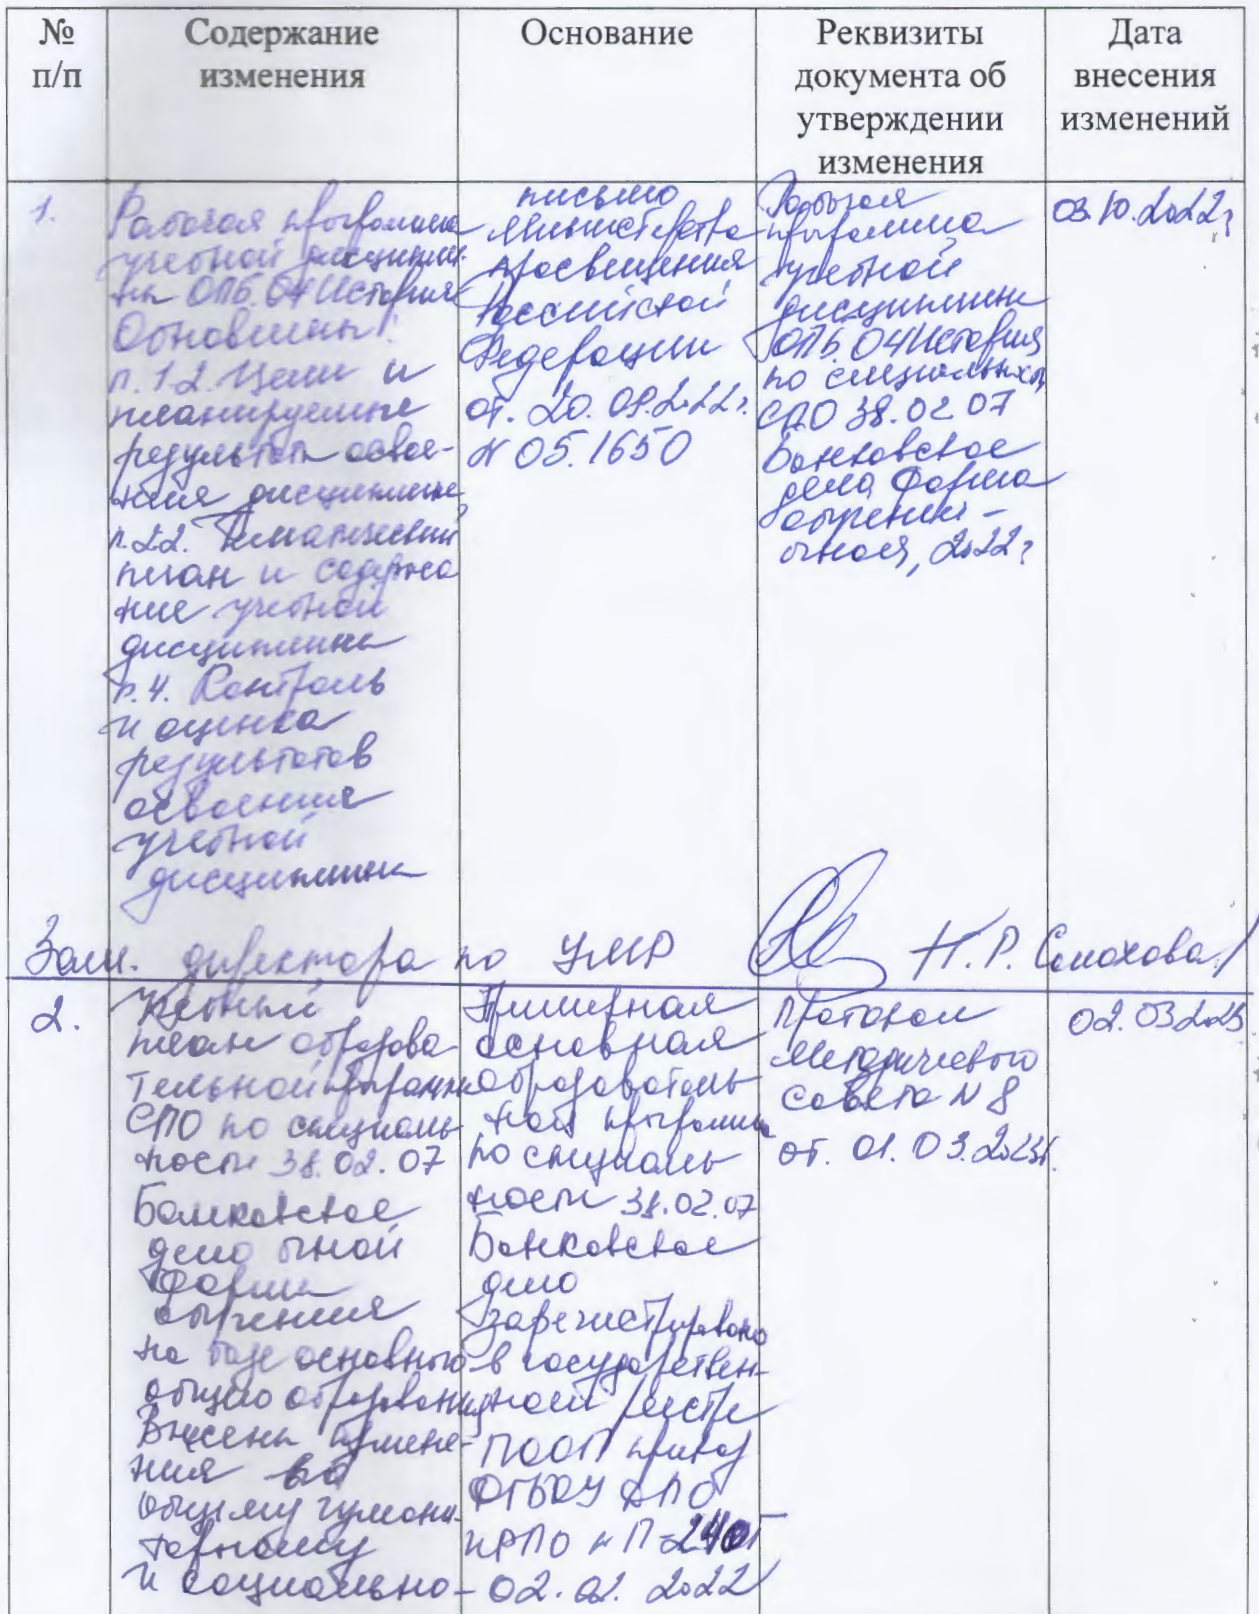 № п/п
Содержание изменения
Основание
Реквизиты документа об утверждении изменения
Дата внесения изменений
1.
Рабочая программа
учебной дисципли-
ны ОПБ.04 История
Обновлены:
п. 1.2. Цели и
планируемые
результаты освое-
ния дисциплины
п.2.2. Тематический
план и содержа
ние учебной
дисциплины
р.4. Контроль
и оценка
результатов
освоения
учебной
дисциплины
письмо
Министерства
просвещения
Российской
Федерации
от. 20.09.2022г.
N 05.1650
Рабочая
программа
учебной
дисциплины
ОПБ.04 История
по специальности
СПО 38.02.07
Банковское
дело, форма
обучения -
очная, 2022г
03.10.2022г
Зам. директора по УМР Н.Р. Смахова/
2.
Учебный
план образова
тельной программы
СПО по специаль
ности 38.02.07
Банковское
дело очной
формы
обучения
на базе основного
общего образования
Внесены измене-
ния во
общему гумани-
тарному
и социально-
Примерная
основная
образователь
ной программы
по специаль
ности 38.02.07
Банковское
дело
зарегистрировано
в государствен-
ном реестре
ПООП приказ
ФГБОУ ДПО
ИРПО N П-24
02.02.2022
Протокол
Методического
совета N 8
от. 01.03.2023г.
02.03.2023